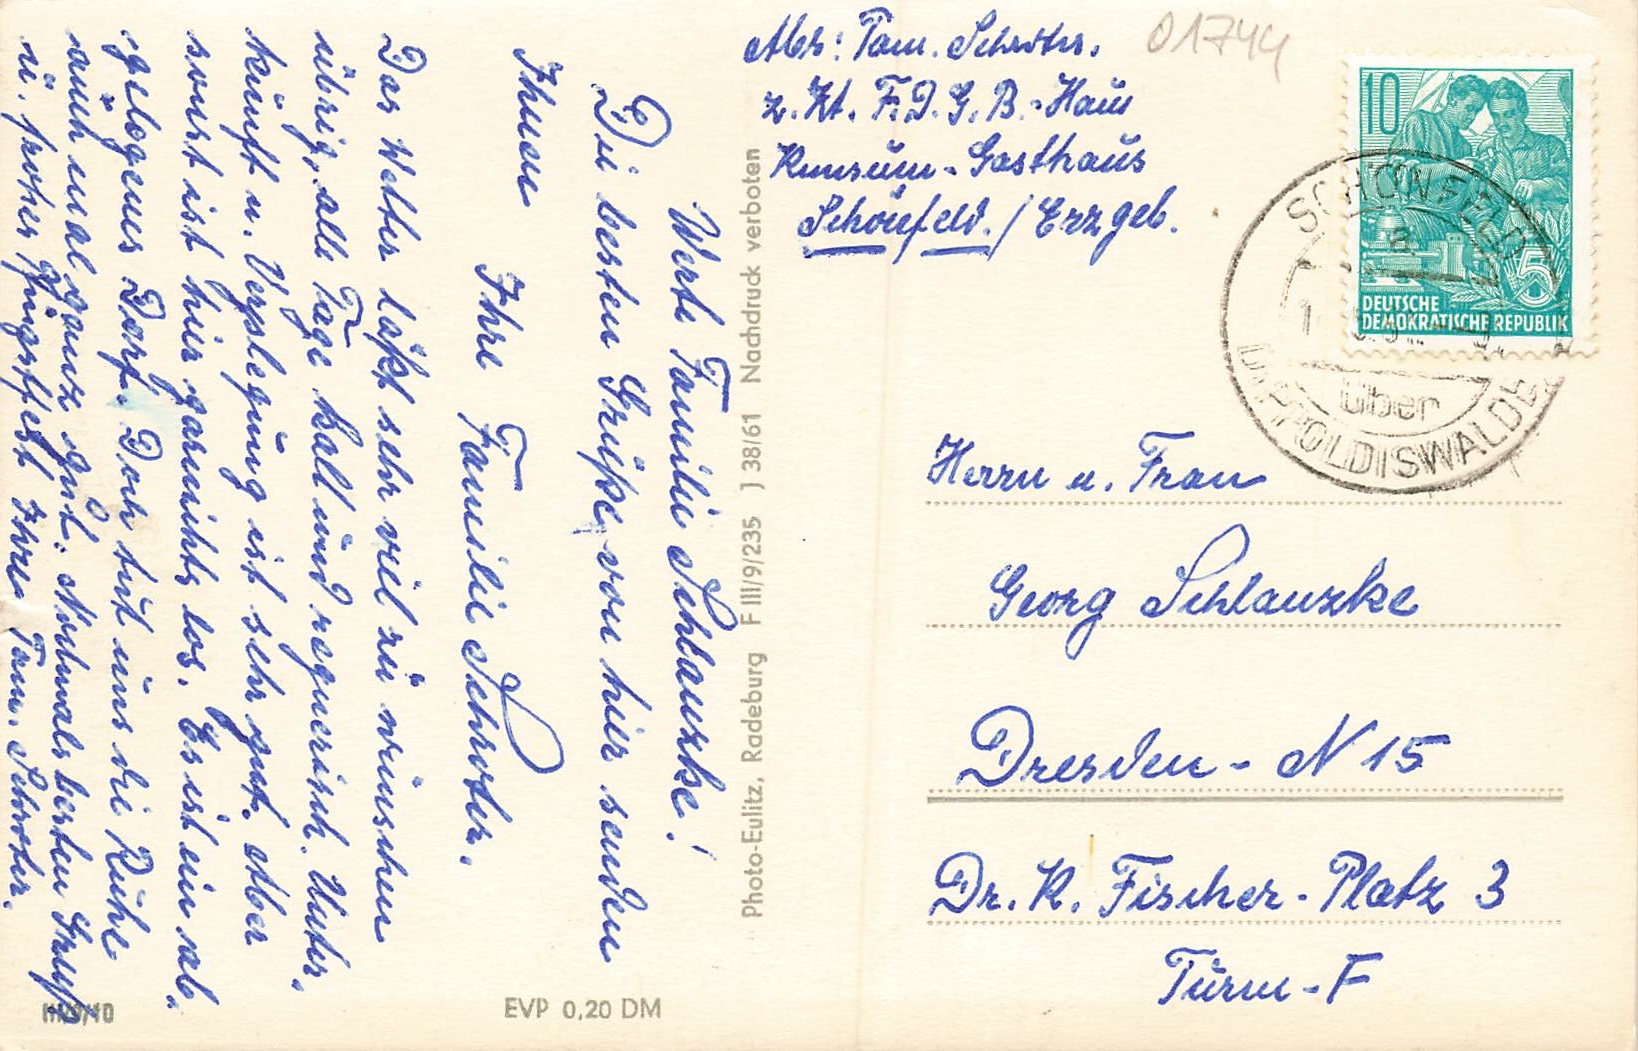 Werte Familie Schlauzke!
Die besten Grüße von hier senden
Ihnen
Ihre Familie Schröter.
Das Wetter läßt sehr viel zu wünschen
übrig, alle Tage kalt und regnerisch. Unter-
kunft u. Verpflegung ist sehr gut. Aber
sonst ist hier garnichts los. Es ist ein ab-
gelegenes Dorf. Doch tut uns die Ruhe
auch mal ganz gut. Nochmals besten Gruß
u. frohes Pfingstfest Ihre Fam. Schröter.
EVP 0,20 DM
Photo-Eulitz, Radeburg F III/9/235 J 38/61 Nachdruck verboten
Abs: Fam. Schröter.
z. Zt. F.D.G.B.-Haus
Konsum-Gasthaus
Schönfeld./Erzgeb.
01744
10
5
DEUTSCHE
DEMOKRATISCHE REPUBLIK
SCHÖNFELD
über
DIPPOLDISWALDE
Herrn u. Frau
Georg Schlauzke
Dresden - N 15
Dr. K. Fischer-Platz 3
Turm-F